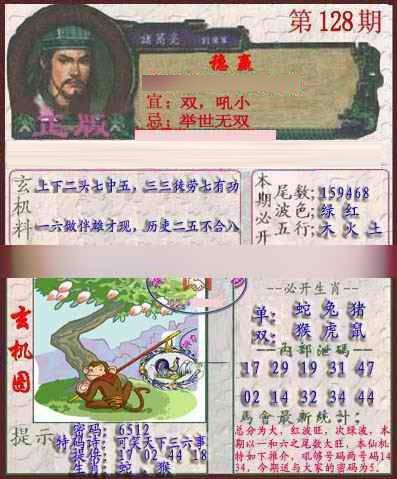 第128期
諸葛亮
稳赢
宜:双,吼小
忌:举世无双
正版
玄机料
上下二头七中五,三三徒劳七有功
一六做伴雄才现,历史二五不合八
本期必开
尾数:159468
波色:绿 红
五行:木 火 土
玄机图
--必开生肖--
单:蛇 兔 猪
双:猴 虎 鼠
--内部泄码--
17 29 19 31 47
02 14 32 34 44
马會最新统计:
总分为大,红波旺,次绿波,本
期以一和六之尾数大旺,本仙机
特如下推介,吼够号码两号码1
4 34,今期送与大家的密码为5.
提示
密码:6512
特码诗:可笑天下三六事
提倍:17 02 44 18
生肖:蛇、猴